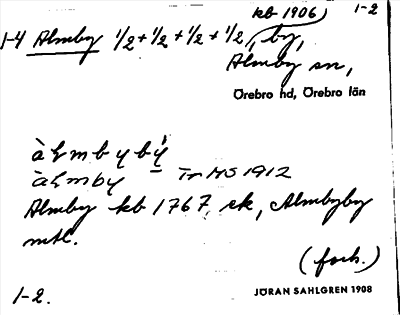 kb 1906) 1-2
1-4 Almby 1/2+1/2+1/2+1/2, by,
Almby sn,
Örebro hd, Örebro län
àlmbybý
àlmby – TrHS 1912
Almby kb 1767, ek, Almbyby
mtl.
(forts.)
1-2.
JÖRAN SAHLGREN 1908